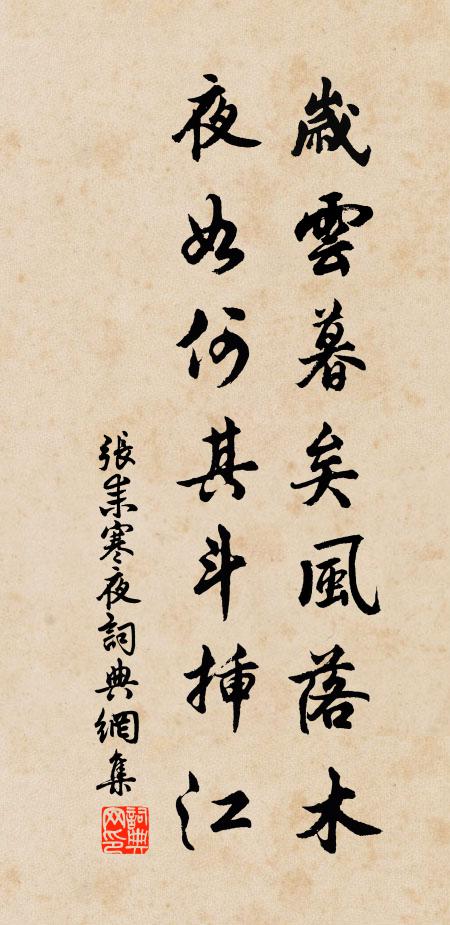 歲雲暮矣風落木
夜如何其斗揷江
張耒寒夜詞典網集
詞典網印